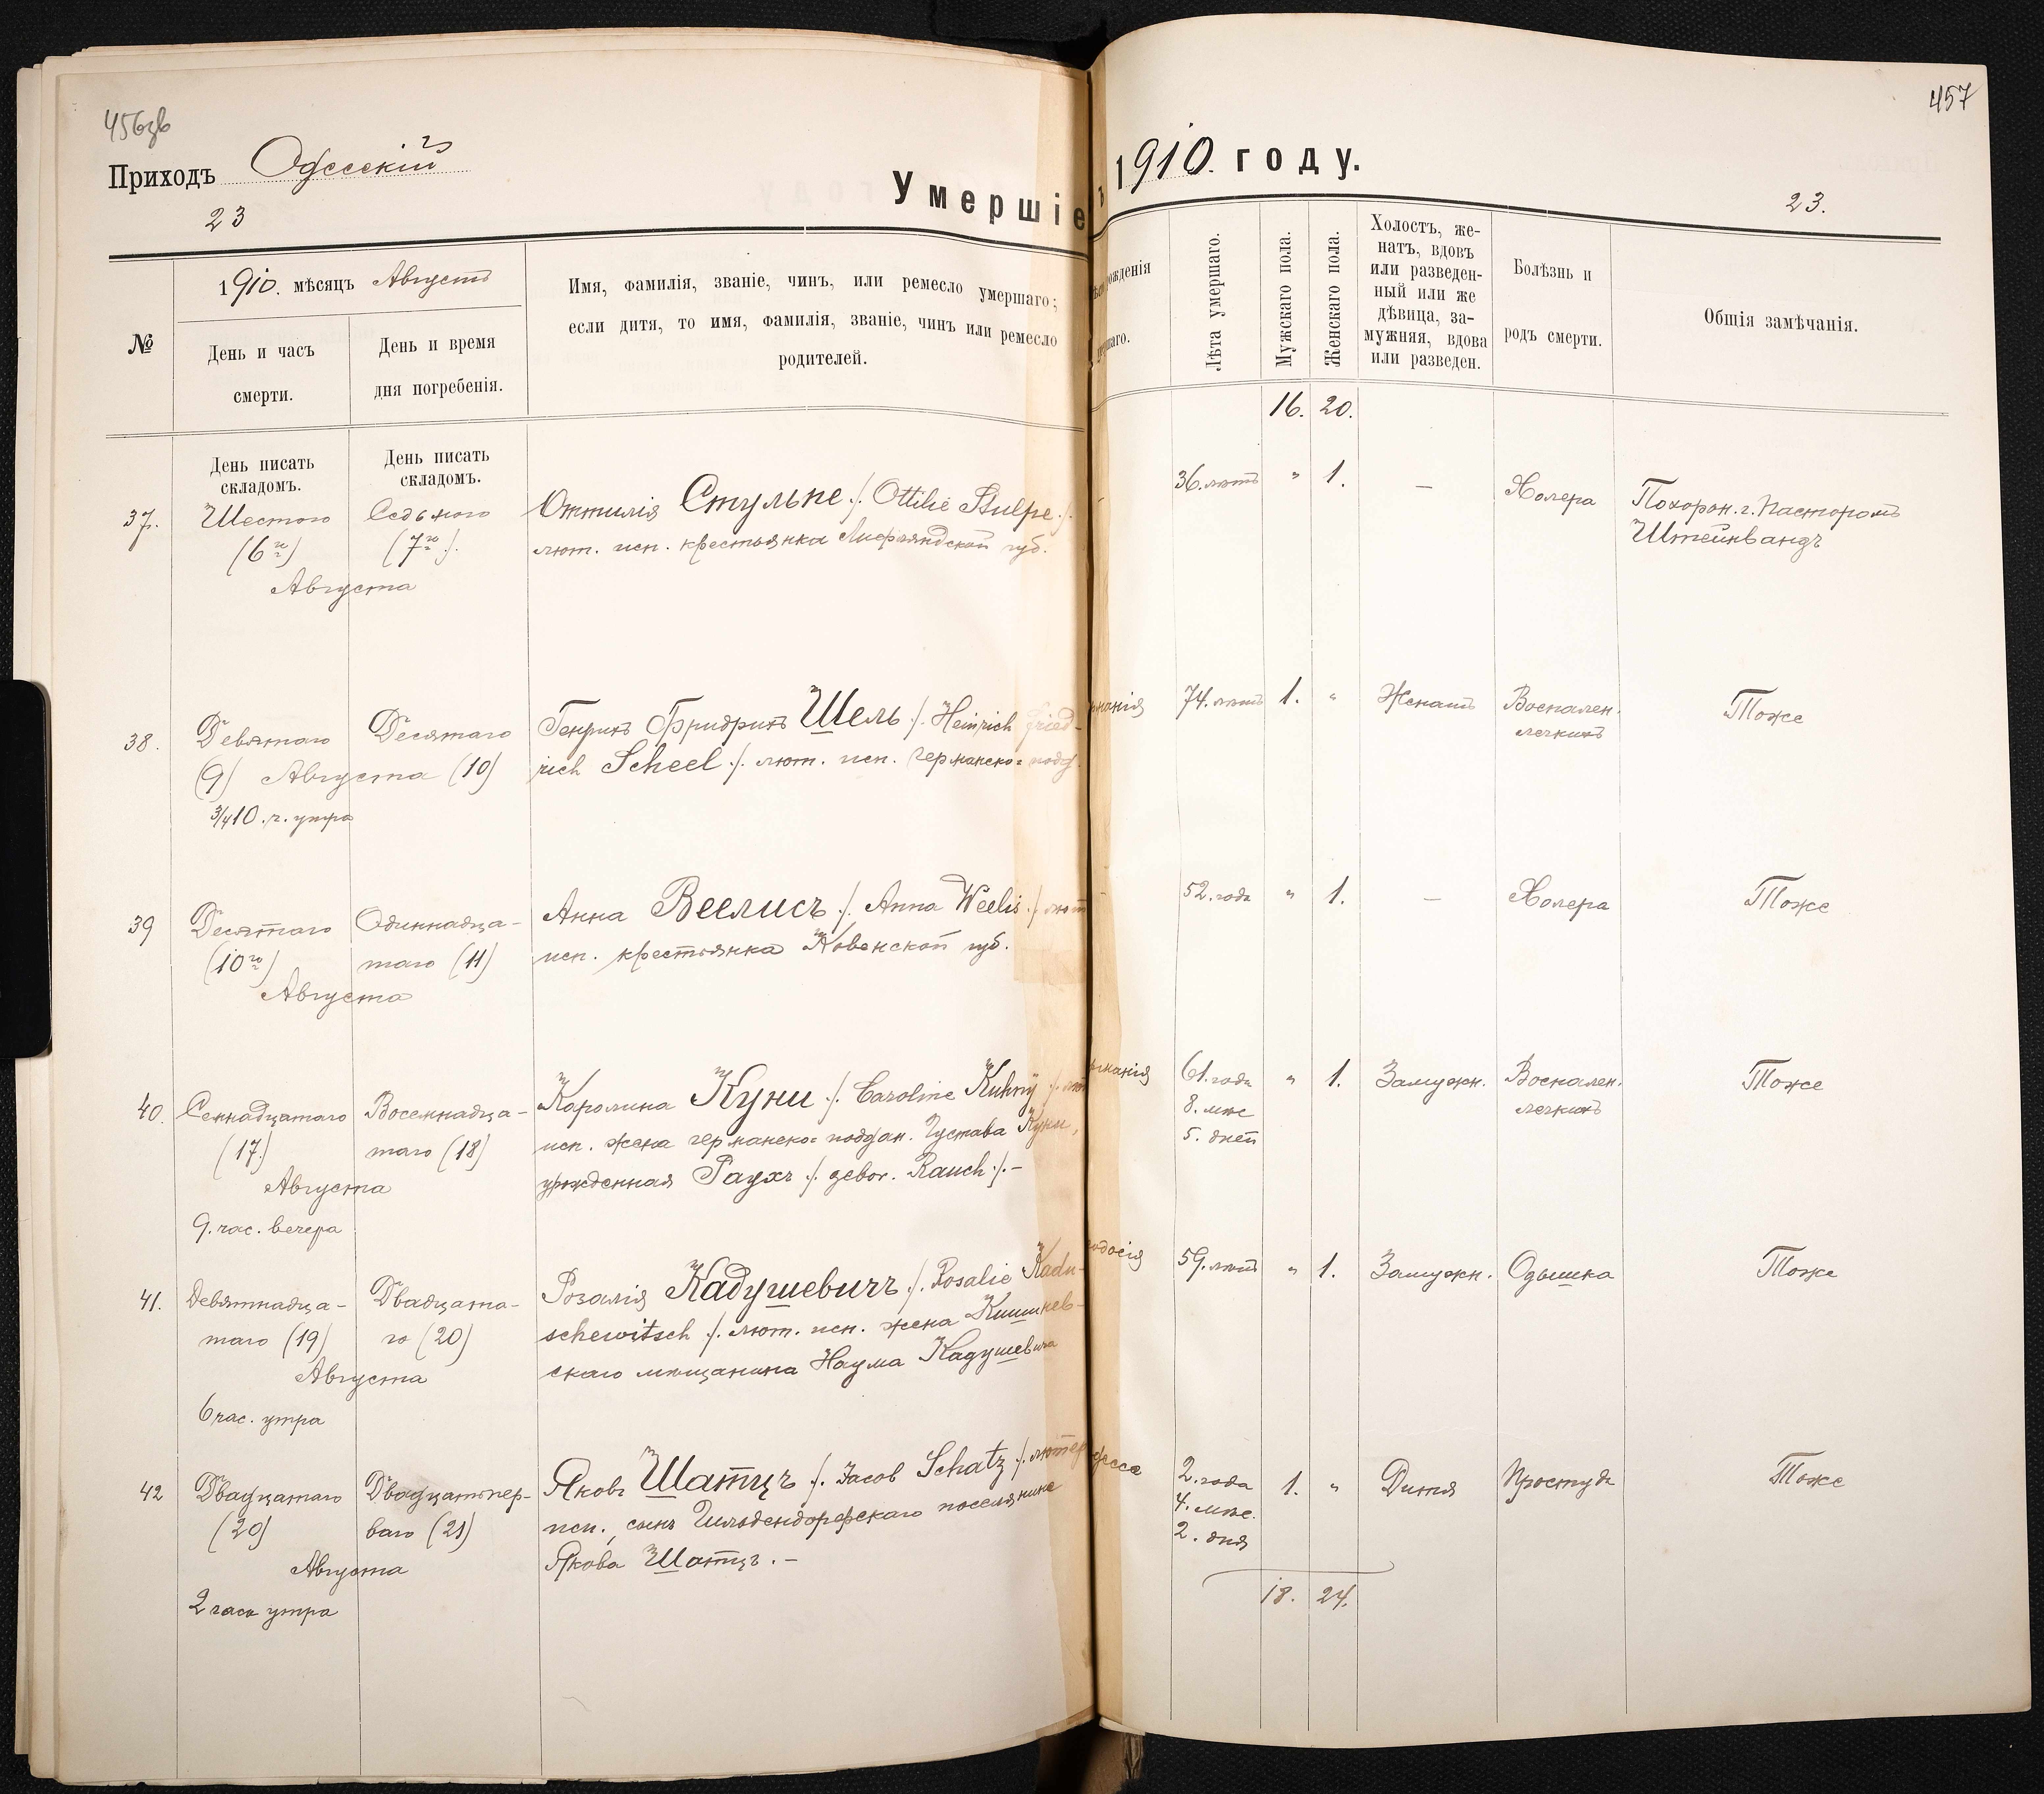 456зв
457
Приходъ Одесскій
Умершіе
ъ 1910. году.
23
23.
№
1910. мѣсяцъ Августъ
День и часъ
смерти.
День и время
дня погребенія.
Имя, фамилія, званіе, чинъ, или ремесло умершаго;
если дитя, то имя, фамилія, званіе, чинъ или ремесло
родителей.
рожденія
Лѣта умершаго.
Мужскаго пола.
Женскаго пола.
Холостъ, же-
натъ, вдовъ
или разведен-
ный или же
дѣвица, за-
мужняя, вдова
или разведен.
Болѣзнь и
родъ смерти.
Общія замѣчанія.
16. 20.
День писать
складомъ.
День писать
складомъ.
37.
Шестого
(6го)
Седьмого
(7го).
Августа
Оттилія Стульпе ./. Ottilie Stulpe ./.
лют. исп. крестьянка Лифляндской губ.
36. лѣтъ " 1. — Холера
Похорон. г. Пасторомъ
Штейнвандъ
38.
Девятаго
Десятаго
(9) Августа (10)
3/4 10. ч. утра
Генрихъ Фридрихъ Шель ./. Heinrich Fried-
rich Scheel ./. лют. исп. германско-подд.
манія 74. лѣтъ 1. " Женатъ
Воспален.
легкихъ
Тоже
39
Десятаго
(10го)
Одиннадца-
таго (11)
Августа
Анна Веелисъ ./. Anna Weelis ./. лют
исп. крестьянка Ковенской губ.
52. года " 1. — Холера Тоже
40.
Семнадцатаго
(17.)
Восемнадца-
таго (18)
Августа
9. час. вечера
Каролина Куни ./. Caroline Kuhny ./. лют
исп. жена германско-поддан. Густава Куни,
урожденная Раухъ ./. gebor. Rauch ./. –
манія
61. года
8. мѣс
5. дней
" 1. Замужн.
Воспален.
легкихъ
Тоже
41.
Девятнадца-
таго (19)
Двадцата-
го (20)
Августа
6 час. утра
Розалія Кадушевичъ ./. Rosalie Kadu-
schewitsch ./. лют. исп. жена Кишинев-
скаго мѣщанина Наума Кадушевича
одосія 59. лѣтъ " 1. Замужн. Одышка Тоже
42
Двадцатаго
(20)
Двадцатопер-
ваго (21)
Августа
2 часа утра
Яковъ Шатцъ ./. Jacob Schatz ./. лютер
исп., сынъ Гильдендорфскаго поселянина
Якова Шатцъ. –
десса
2. года
4. мѣс.
2. дня
1. " Дитя Простуда Тоже
18. 24.